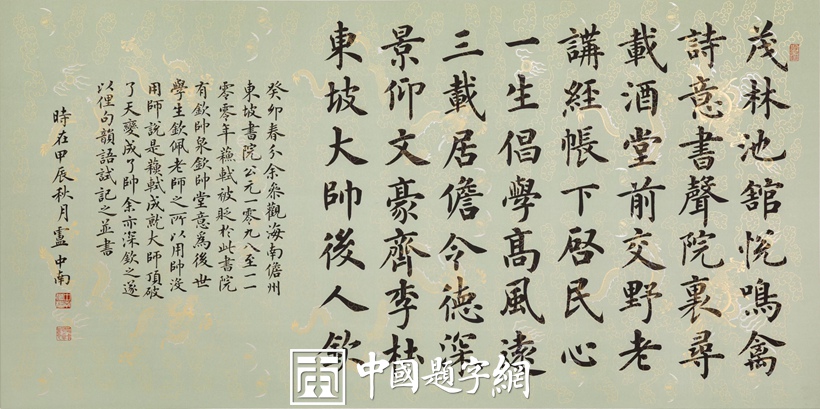 茂林池舘悅鳴禽
詩意書聲院裏尋
載酒堂前交野老
講經帳下啓民心
一生倡學髙風遠
三載居儋令德深
景仰文豪齊李杜
東坡大帥後人欽
癸卯春分余叅觀海南儋州
東坡書院公元一零九八至一一
零零年蘓軾被貶於此書院
有欽帥泉欽帥堂意爲後世
學生欽佩老師之所以用帥沒
用師說是蘓軾成就大師頂破
了天變成了帥余亦深欽之遂
以俚句韻語試記之並書
時在甲辰秋月盧中南
中國題字網